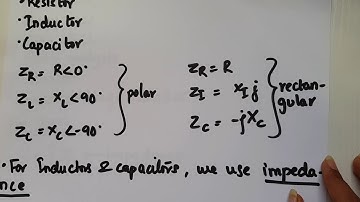 • Resistor
• Inductor
• Capacitor
Z_R = R<0°
Z_L = X_L<90°
Z_C = X_C<-90°
polar
Z_R = R
Z_I = X_I j
Z_C = -jX_C
rectan-
gular
• For Inductors & capacitors, we use impeda-
nce